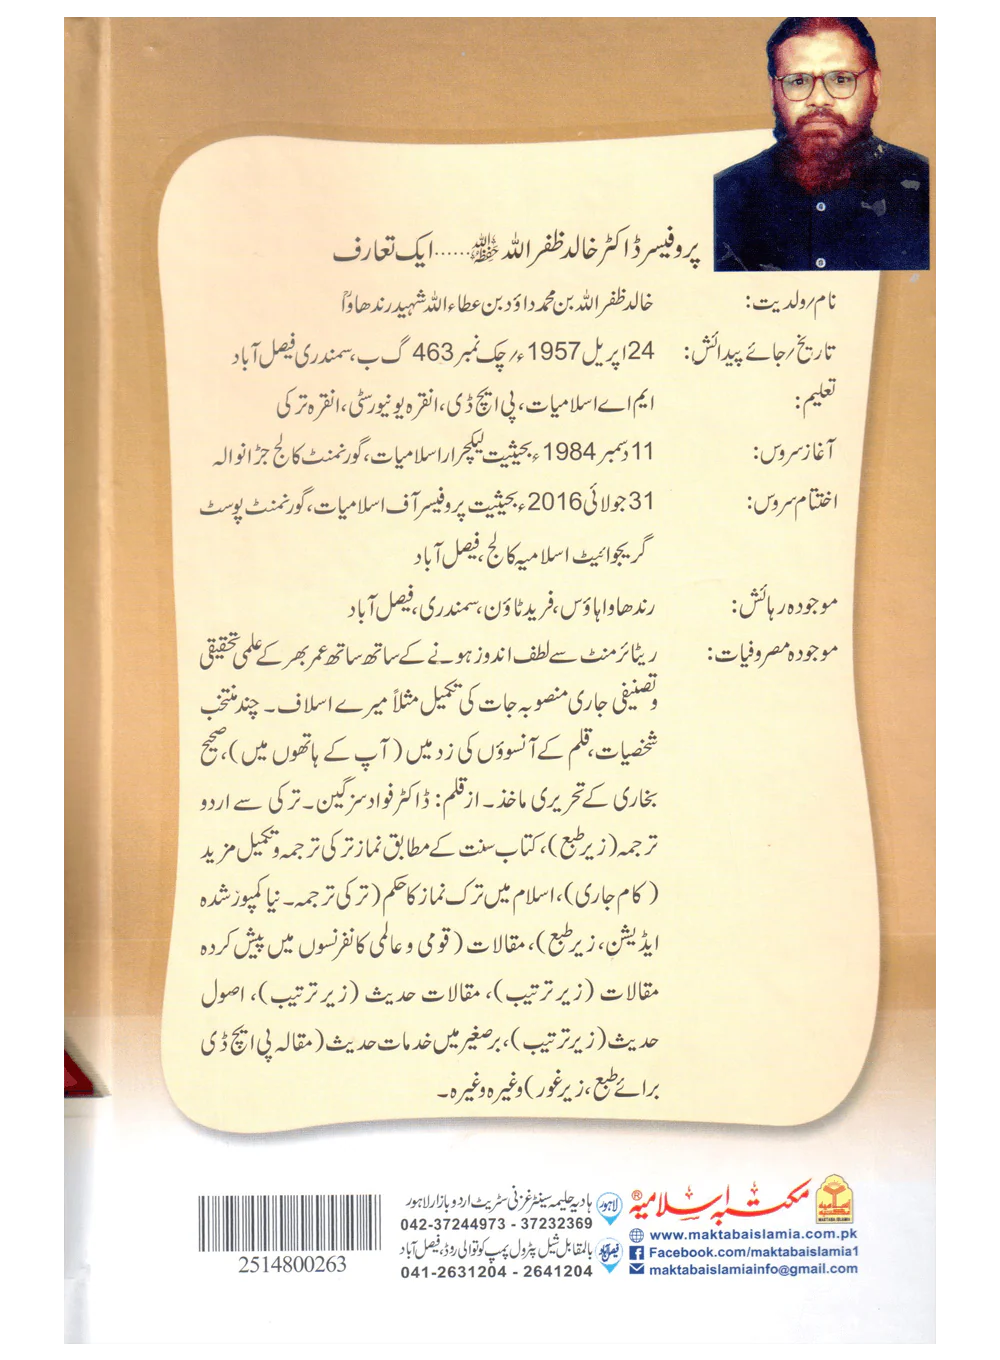 پروفیسر ڈاکٹر خالد ظفر اللہ حفظہ اللہ...... ایک تعارف
نام/ولدیت: خالد ظفر اللہ بن محمد داؤد بن عطاء اللہ شہید رندھاواؒ
تاریخ/جائے پیدائش: 24 اپریل 1957ء/چک نمبر 463 گ ب، سمندری فیصل آباد
تعلیم: ایم اے اسلامیات، پی ایچ ڈی، انقرہ یونیورسٹی، انقرہ ترکی
آغاز سروس: 11 دسمبر 1984ء بحیثیت لیکچرار اسلامیات، گورنمنٹ کالج جڑانوالہ
اختتام سروس: 31 جولائی 2016ء بحیثیت پروفیسر آف اسلامیات، گورنمنٹ پوسٹ
گریجوائیٹ اسلامیہ کالج، فیصل آباد
موجودہ رہائش: رندھاوا ہاؤس، فرید ٹاؤن، سمندری، فیصل آباد
موجودہ مصروفیات: ریٹائرمنٹ سے لطف اندوز ہونے کے ساتھ ساتھ عمر بھر کے علمی تحقیقی
و تصنیفی جاری منصوبہ جات کی تکمیل مثلاً میرے اسلاف۔ چند منتخب
شخصیات، قلم کے آنسوؤں کی زد میں (آپ کے ہاتھوں میں)، صحیح
بخاری کے تحریری ماخذ۔ از قلم: ڈاکٹر فواد سزگین۔ ترکی سے اردو
ترجمہ (زیر طبع)، کتاب سنت کے مطابق نماز ترکی ترجمہ و تکمیل مزید
(کام جاری)، اسلام میں ترک نماز کا حکم (ترکی ترجمہ۔ نیا کمپوز شدہ
ایڈیشن، زیر طبع)، مقالات (قومی و عالمی کانفرنسوں میں پیش کردہ
مقالات (زیر ترتیب)، مقالات حدیث (زیر ترتیب)، اصول
حدیث (زیر ترتیب)، برصغیر میں خدمات حدیث (مقالہ پی ایچ ڈی
برائے طبع، زیر غور) وغیرہ وغیرہ۔
مکتبہ اسلامیہ®
MAKTABA ISLAMIA
www.maktabaislamia.com.pk
Facebook.com/maktabaislamia1
maktabaislamiainfo@gmail.com
لاہور ہادیہ حلیمہ سینٹر غزنی سٹریٹ اردو بازار لاہور
042-37244973 - 37232369
فیصل آباد بالمقابل شیل پٹرول پمپ کوتوالی روڈ، فیصل آباد
041-2631204 - 2641204
2514800263